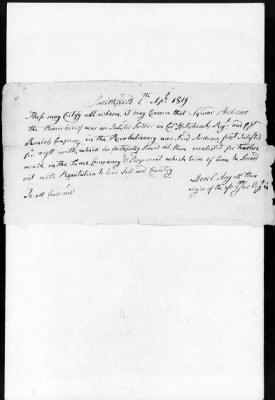 Smithfield 6th Apl. 1819
These may Certify all whom it may Concern that Squier Andrews
the Bearer hereof was an Inlisted Soldier in Col Hitchcocks Regt. and Capt
Company in the Revolutionary war Said Andrews first Inlisted
for eight months which he faithfully Served out then reinlisted for Twelve
month in the Same Company & Regiment which term of time he Served
out with Reputation to him Self and Country
then
of the Regt
To all Concerned